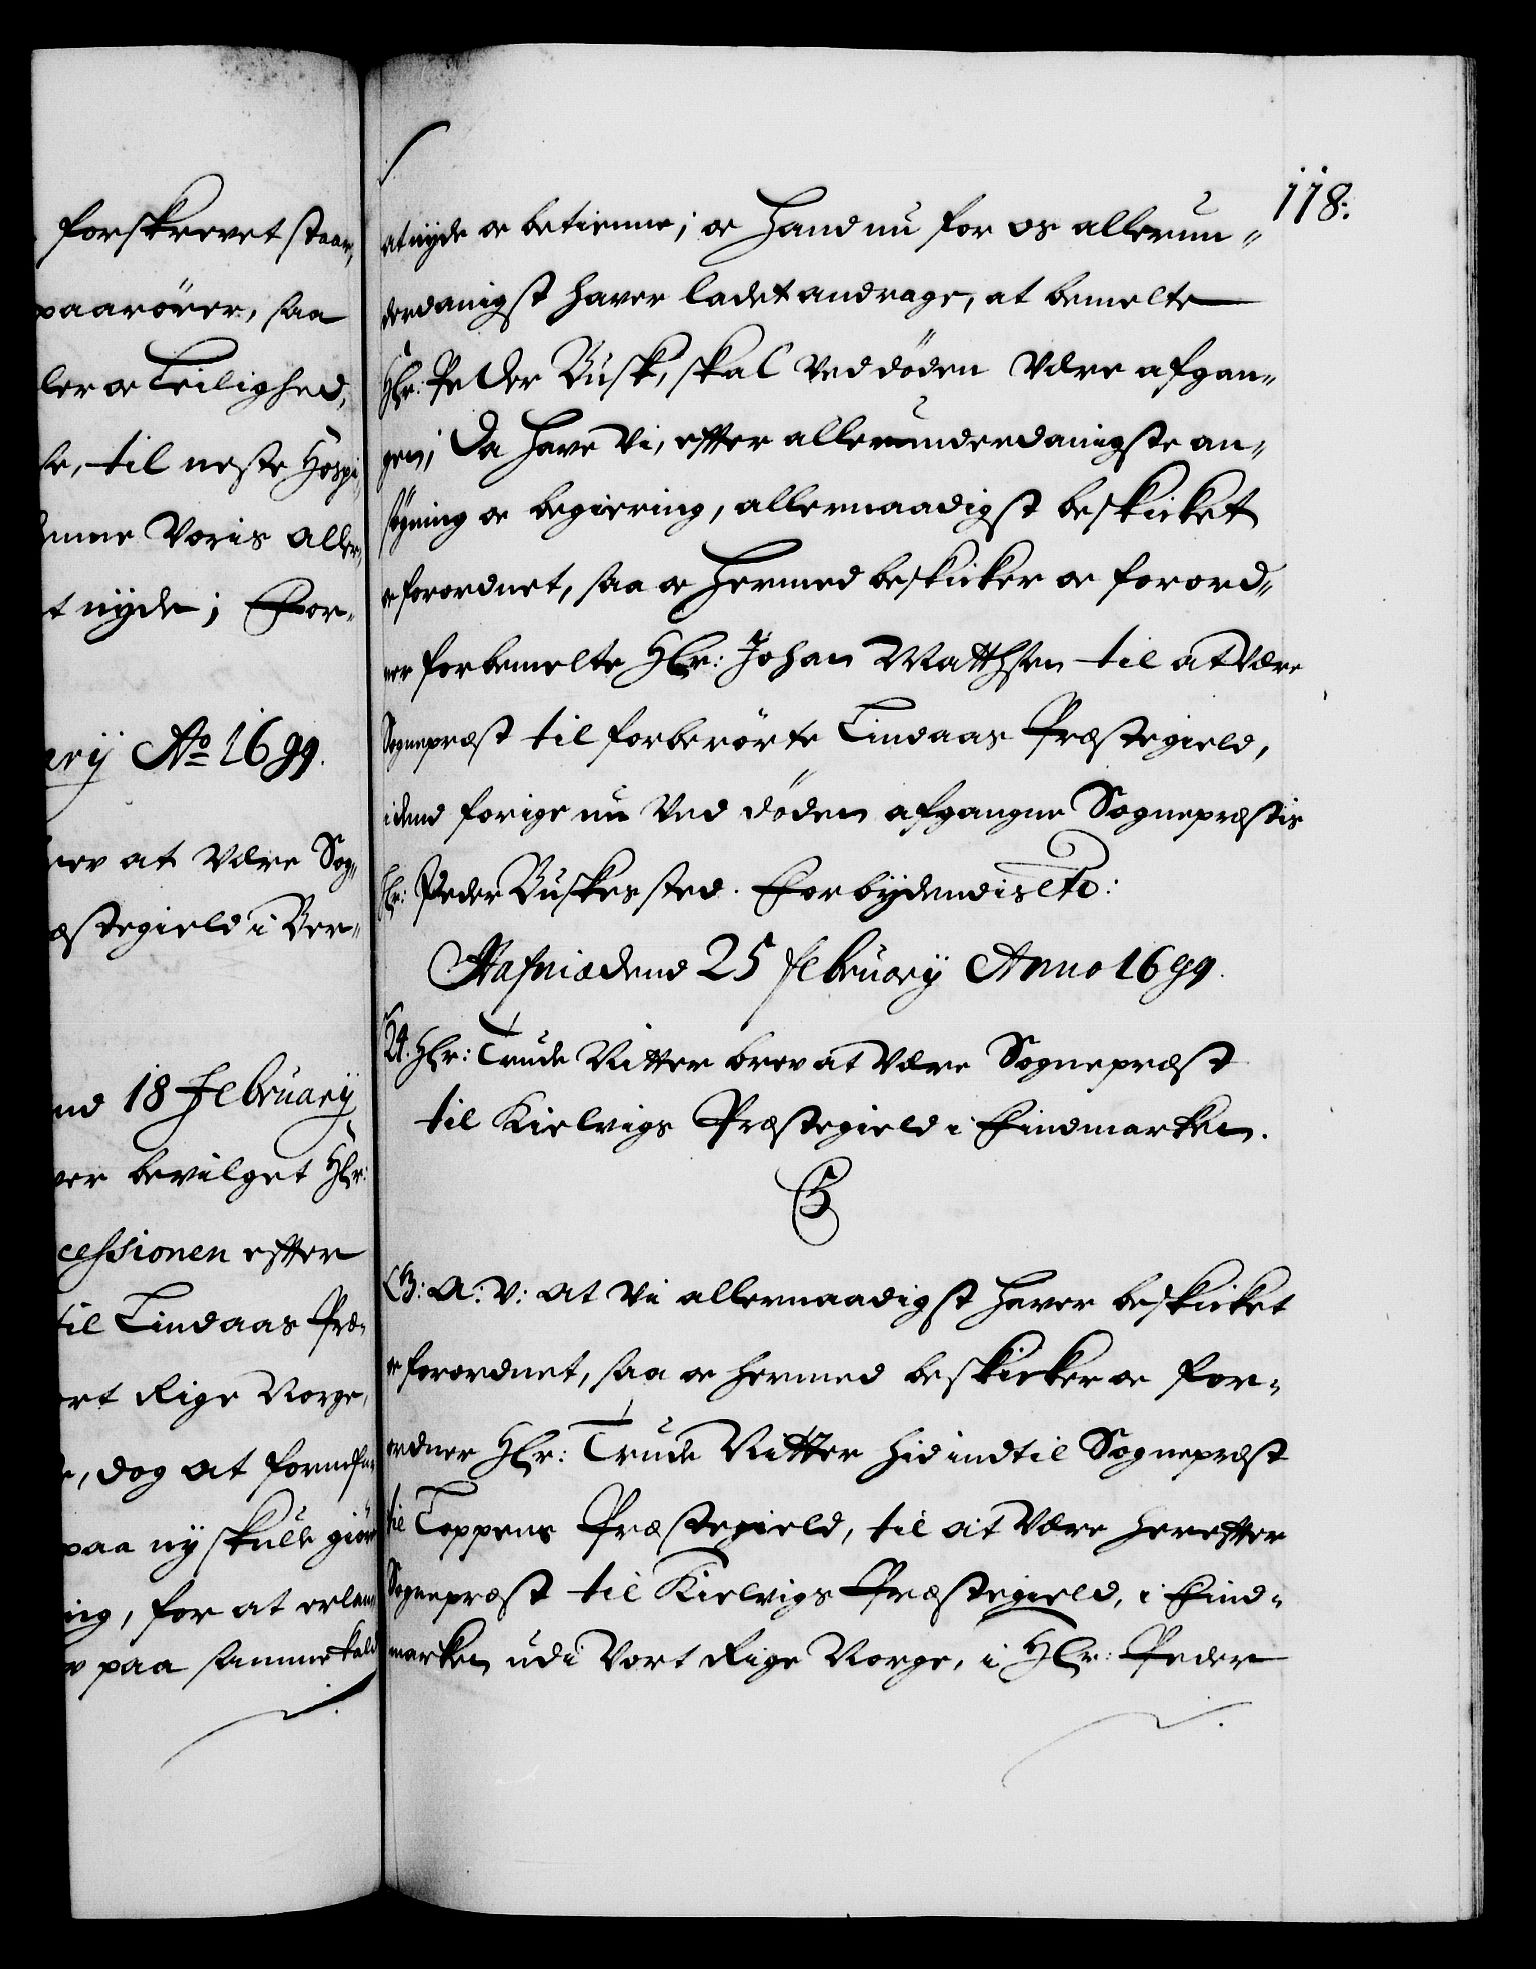 forskrevet staar,
paarörer, saa
ler oc Leilighed,
se, til neste Hospi,,
denne Voris aller,,
t nyde; For-
ary Ao 1699.
brev at være Sog,,
æstegield i Ber,,
nd 18 February
ver bevilget Hr:
cessionen efter
til Lindaas Præ,,
ort Rige Norge,
e, dog at fornefn
paa ny skulle giör
ing, for at erlan
v paa samme kald
118:
at nyde oc betienne; oc Hand nu for os allerun,,
derdanigst haver ladet andrage, at bemelte
Hr: Peder Busk, skal ved döden være afgan,,
gen; Da have Vi, efter allerunderdanigste an,,
sögning oc begiering, allernaadigst beskicket
oc forordnet, saa oc Hermed beskicker oc forord,,
ner forbemelte Hr: Johan Matthsen til at være
Sognepræst til forberörte Lindaas Præstegield,
i dend forige nu ved döden afgangne Sognepræstis
Hr: Peder Buskes sted. Forbydendis etc:
Hafniæ dend 25 February Anno 1699.
24. Hr: Trude Nitter brev at være Sognepræst
til Kielvigs Præstegield i Findmarken.
C5
C5: A: V: at Vi allernaadigst haver beskicket
oc forordnet, saa oc hermed beskicker oc for,,
ordner Hr: Trude Nitter hid indtil Sognepræst
til Loppens Præstegield, til at være herefter
Sognepræst til Kielvigs Præstegield, i Find,,
marken udi Vort Rige Norge, i Hr: Peder